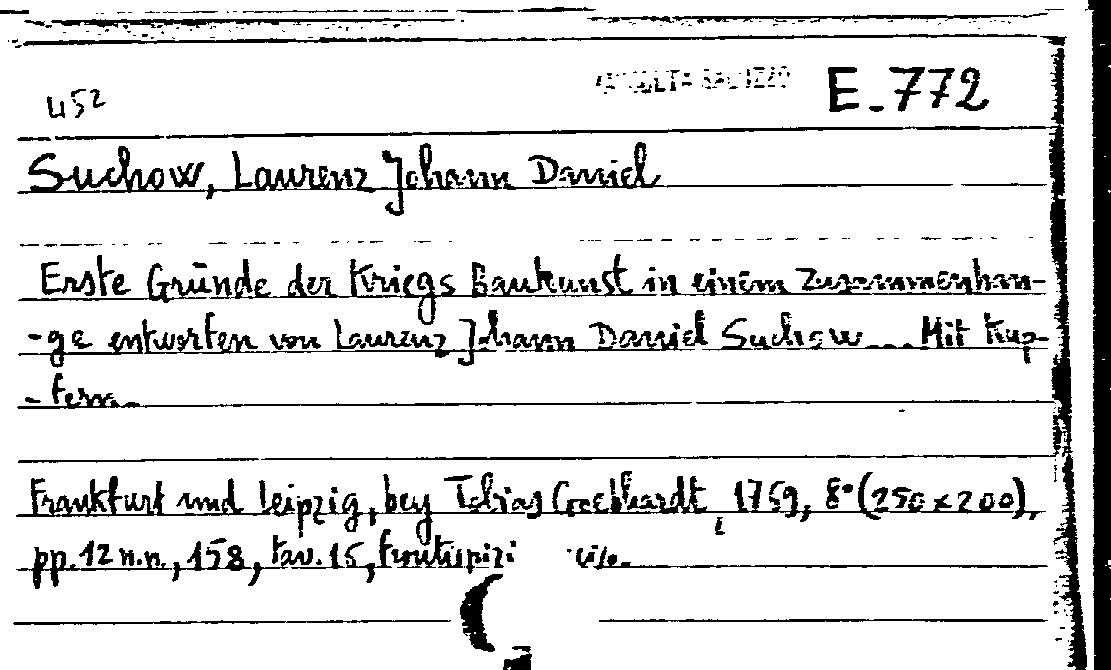 452 RACCOLTA SALUZZO E.772
Suchow, Laurenz Johann Daniel
Erste Gründe der Kriegs Baukunst in einem Zusammenhan-
-ge entworfen von Laurenz Johann Daniel Suchow... Mit Kup-
-fern.
Frankfurt und Leipzig, bey Tobias Goebhardt, 1759, 8° (250x200),
pp. 12 n.n., 158, tav. 15, frontispizi